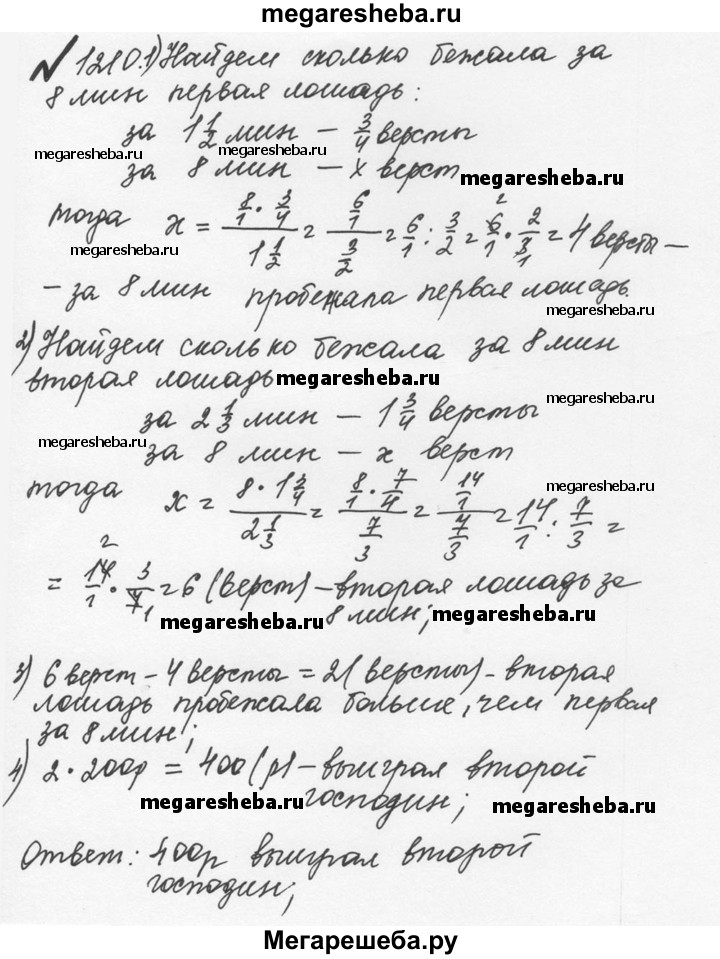 megaresheba.ru
№ 1210.1) Найдем сколько бежала за
8 мин первая лошадь:
за 1 1/2 мин – 3/4 версты
megaresheba.ru
за 8 мин – x верст
megaresheba.ru
тогда x = (8/1 · 3/4)/(1 1/2) = (6/1)/(3/2) = 6/1 : 3/2 = 6/1 · 2/3 = 4 версты –
2 1
megaresheba.ru
– за 8 мин пробежала первая лошадь.
2) Найдем сколько бежала за 8 мин
вторая лошадь
megaresheba.ru
за 2 1/3 мин – 1 3/4 версты
megaresheba.ru
megaresheba.ru
за 8 мин – x верст
тогда x = (8 · 1 3/4)/(2 1/3) = (8/1 · 7/4)/(7/3) = (14/1)/(7/3) = 14/1 : 7/3 =
megaresheba.ru
= 14/1 · 3/7 = 6 (верст) – вторая лошадь за
2 1
8 мин;
megaresheba.ru
megaresheba.ru
3) 6 верст – 4 версты = 2 (версты) – вторая
лошадь пробежала больше, чем первая
за 8 мин;
4) 2 · 200р = 400 (р) – выиграл второй
господин;
megaresheba.ru
megaresheba.ru
Ответ: 400р выиграл второй
господин;
Мегарешеба.ру